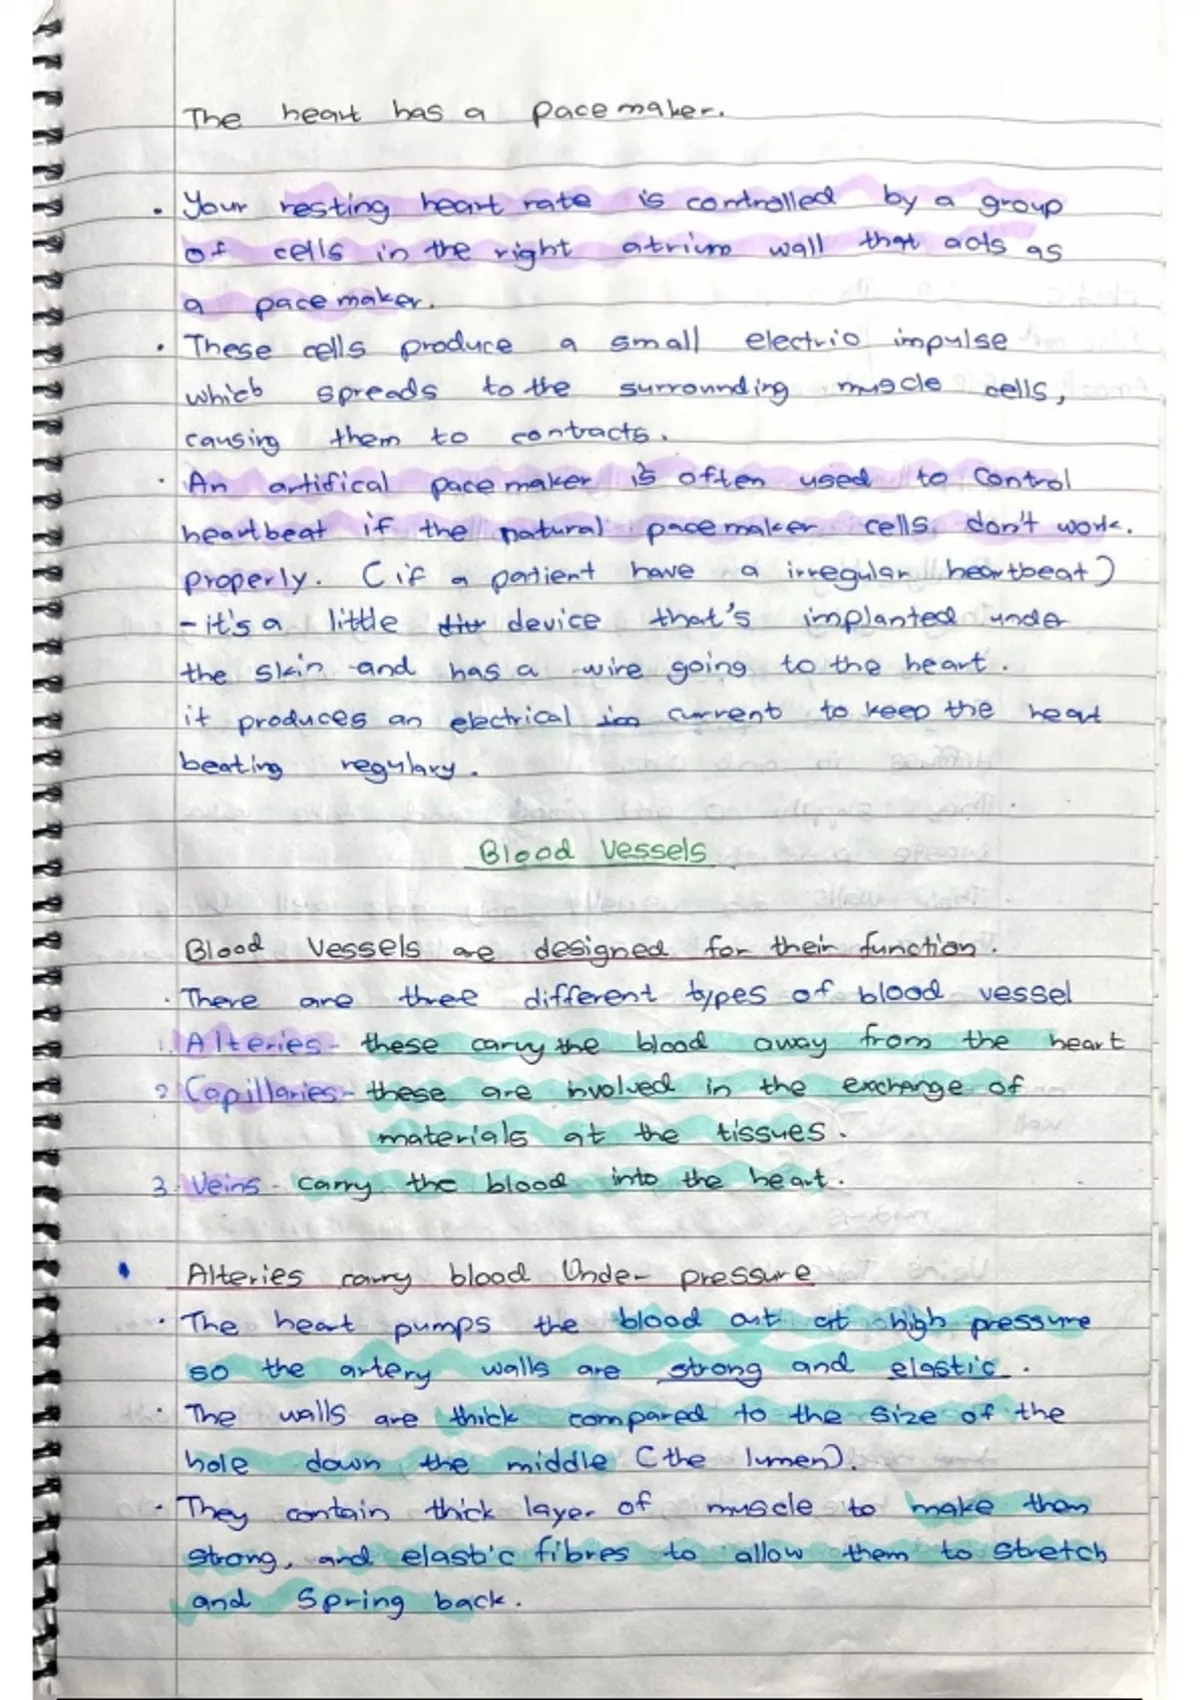 The heart has a pacemaker.
• Your resting heart rate is controlled by a group
of cells in the right atrium wall that acts as
a pacemaker.
• These cells produce a small electric impulse
which spreads to the surrounding muscle cells,
causing them to contracts.
• An artifical pacemaker is often used to control
heartbeat if the natural pacemaker cells don't work.
properly. (if a patient have a irregular heartbeat)
- it's a little device that's implanted under
the skin and has a wire going to the heart.
it produces an electrical current to keep the heart
beating regulary.
Blood Vessels
Blood Vessels are designed for their function.
• There are three different types of blood vessel
1. Alteries - these carry the blood away from the heart
2 Capillaries - these are involved in the exchange of
materials at the tissues.
3. Veins - carry the blood into the heart.
• Alteries carry blood Under pressure
• The heart pumps the blood out at high pressure
so the artery walls are strong and elastic.
• The walls are thick compared to the size of the
hole down the middle (the lumen).
• They contain thick layer of muscle to make them
strong, and elastic fibres to allow them to stretch
and Spring back.